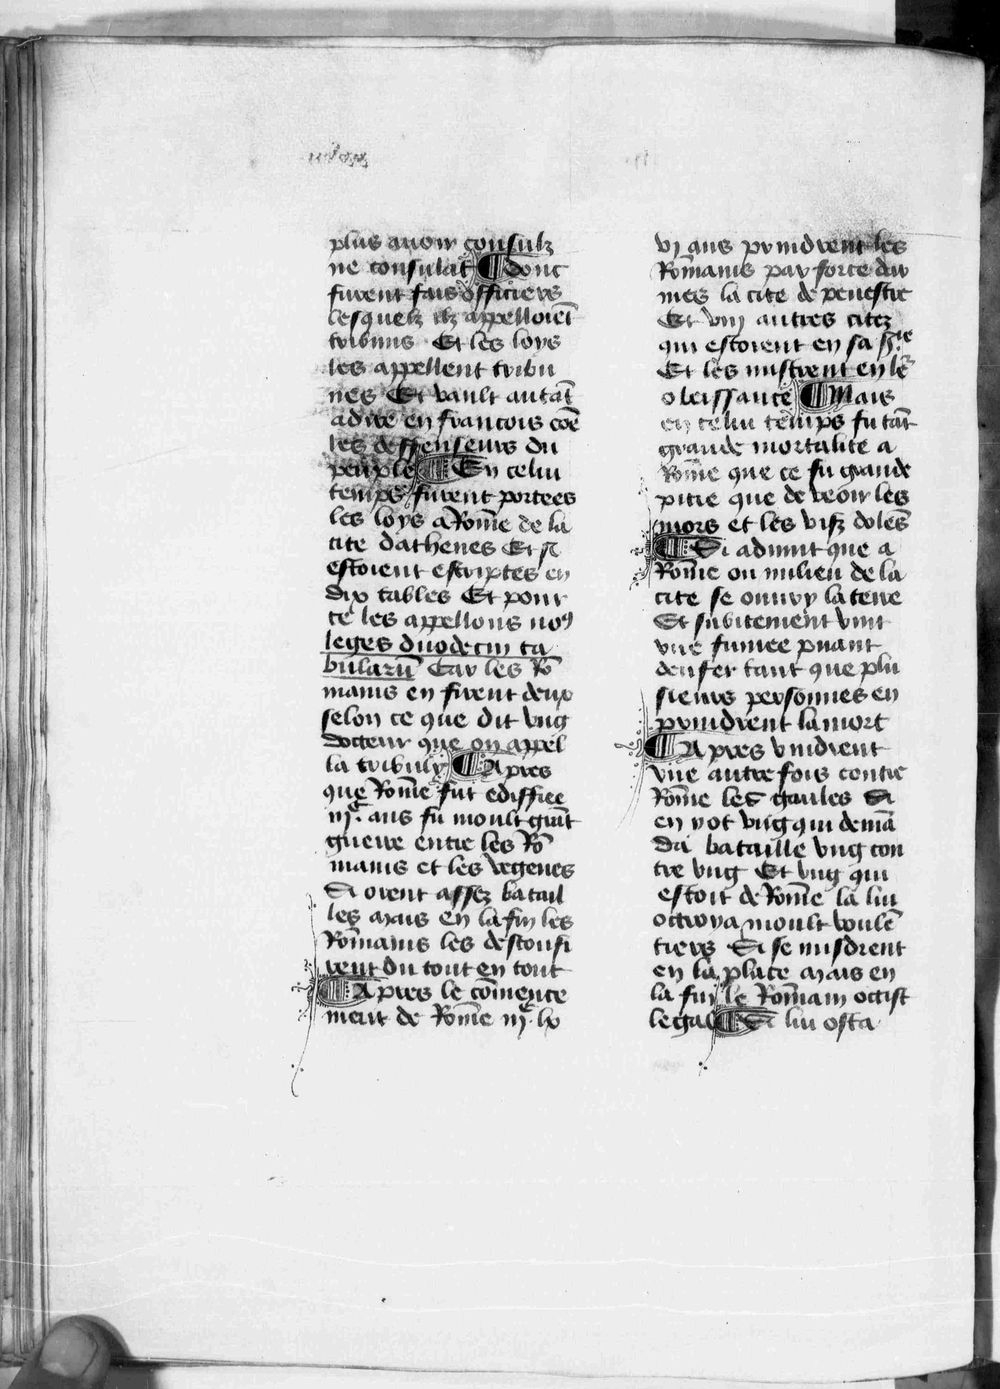 plus auoir consulz
ne consulat ¶ Donc
furent fais officiers
lesquelz ilz appelloiēt
tribuns Et les loys
les appellent tribu
nes Et vault autāt
adire en francois cōe
les deffenseurs du
peuple ¶ En celui
temps furent portees
les loys a Rōme de la
cite dathenes Et si
estoient escriptes en
dix tables Et pour
ce les appellons noꝰ
leges duodecim ta
bularū Car les Rō
mains en firent deux
selon ce que dit vng
docteur que on appel
la tribuly ¶ Apres
que Rōme fut ediffiee
iijᶜ. ans fu moult grāt
guerre entre les Rō
mains et les vegenes
Si orent assez batail
les mais en la fin les
Rōmains les desconfi
rent du tout en tout
¶ Apres le cōmence
ment de Rōme iijᶜ. lx
vj ans prindrent les
Rōmains par force dar
mes la cite de penestre
Et viij autres citez
qui estoient en sa
Et les mistrent en lēr
obeissance ¶ Mais
en celui tēmps fu tāt
grande mortalite a
Rōme que ce fu grande
pitie que de veoir les
mors et les vifz dolēs
¶ Si aduint que a
Rōme ou milieu de la
cite se ouury la terre
Et subitement vint
vne fumee puant
denfer tant que plu
sieurs personnes en
prindrent la mort
¶ Apres vindrent
vne autre fois contre
Rōme les gaules Si
en y ot vng qui demā
da bataille vng con
tre vng Et vng qui
estoit de Rōme la lui
octroya moult voulē
tiers Si se misdrent
en la place mais en
la fin le Rōmain occist
le gal ¶ Si lui osta